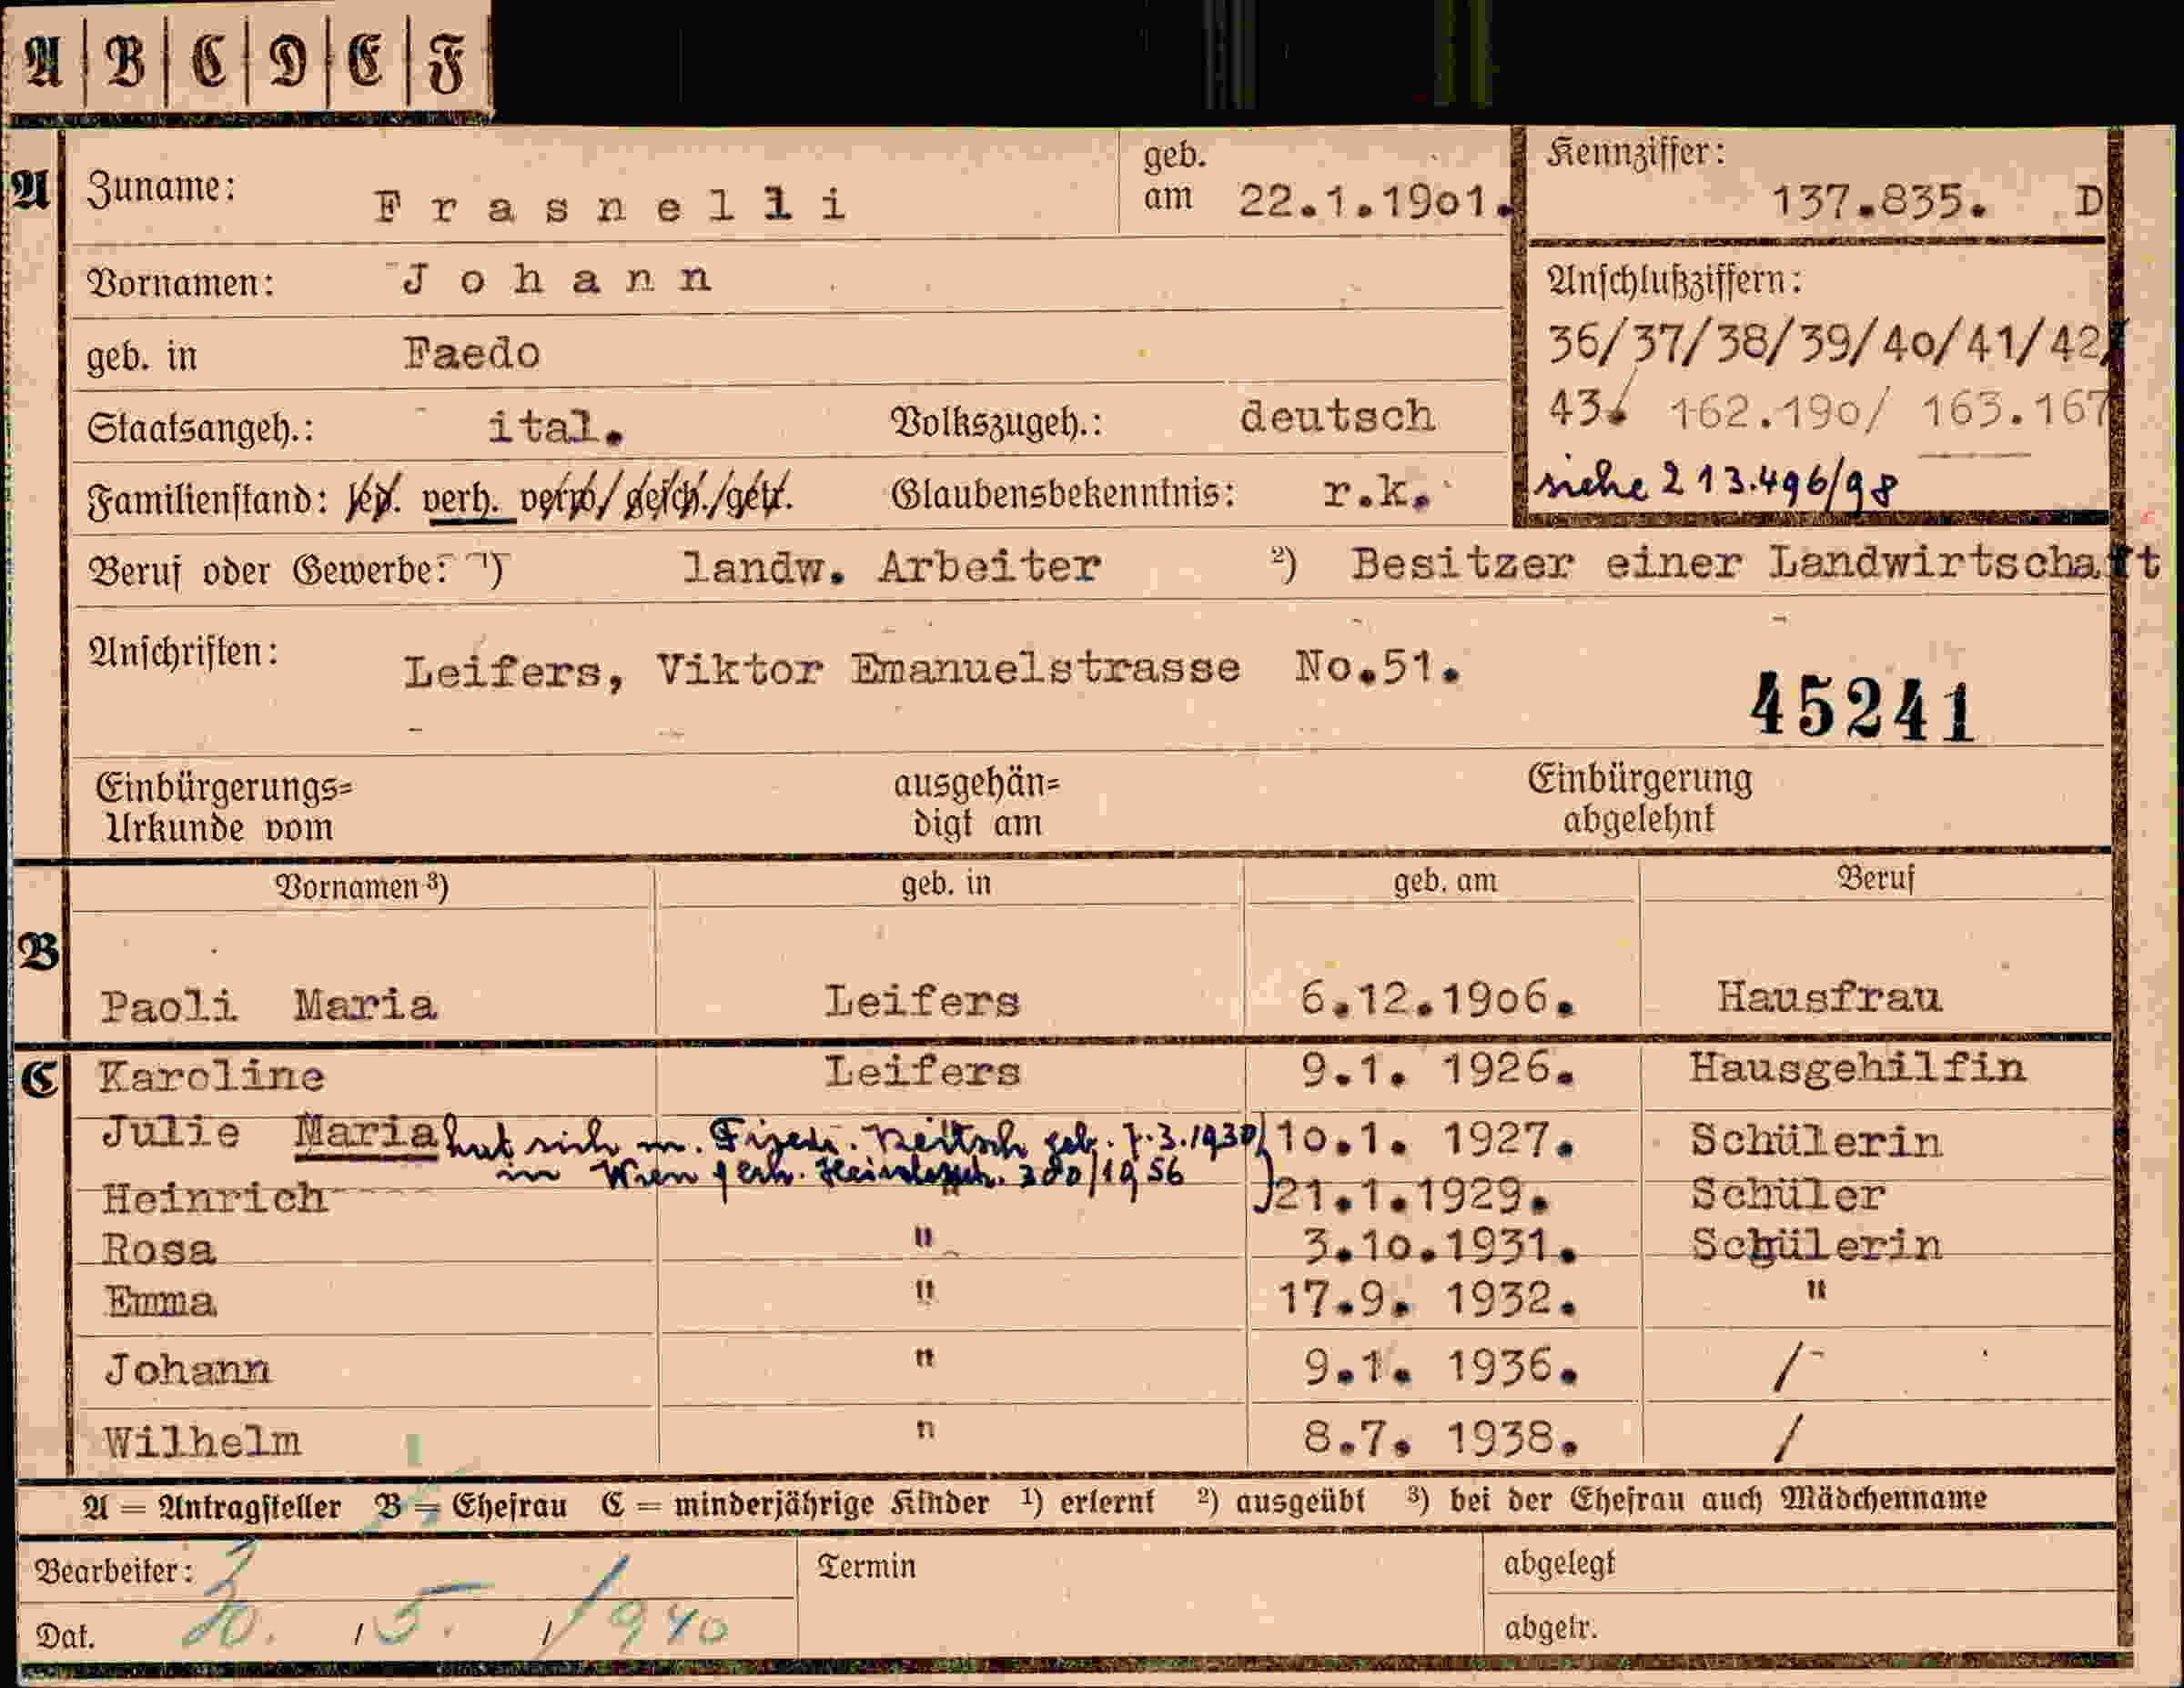 A | B | C | D | E | F
A Zuname: Frasnelli geb. am 22.1.1901. Kennziffer: 137.835. D
Vornamen: Johann Anschlußziffern:
geb. in Faedo 36/37/38/39/40/41/42/
Staatsangeh.: ital. Volkszugeh.: deutsch 43/ 162.190/ 163.167
Familienstand: led. verh. verw/gesch./getr. Glaubensbekenntnis: r.k. siehe 213.496/98
Beruf oder Gewerbe: ¹) landw. Arbeiter ²) Besitzer einer Landwirtschaft
Anschriften: Leifers, Viktor Emanuelstrasse No.51.
45241
Einbürgerungs= ausgehän= Einbürgerung
Urkunde vom digt am abgelehnt
Vornamen ³) geb. in geb. am Beruf
B
Paoli Maria Leifers 6.12.1906. Hausfrau
C Karoline Leifers 9.1. 1926. Hausgehilfin
Julie Maria hat sich m. geb. 7.3.1930 10.1. 1927. Schülerin
in Wien 380/1956
Heinrich 21.1.1929. Schüler
Rosa " 3.10.1931. Schülerin
Emma " 17.9. 1932. "
Johann " 9.1. 1936. /
Wilhelm " 8.7. 1938. /
A = Antragsteller B = Ehefrau C = minderjährige Kinder ¹) erlernt ²) ausgeübt ³) bei der Ehefrau auch Mädchenname
Bearbeiter: Termin abgelegt
Dat. 30. / 5. / 1940 abgetr.